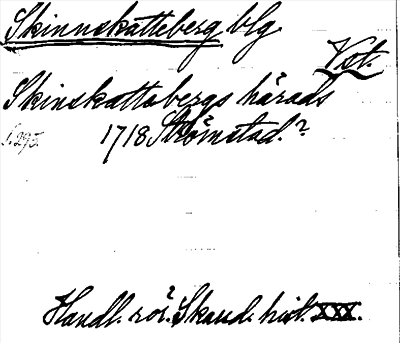 Skinnskatteberg blg
Vst.
Skinskattabergs härads
1718 Strömstad.?
s. 295.
Handl. rör? Skand. hist. XXX.